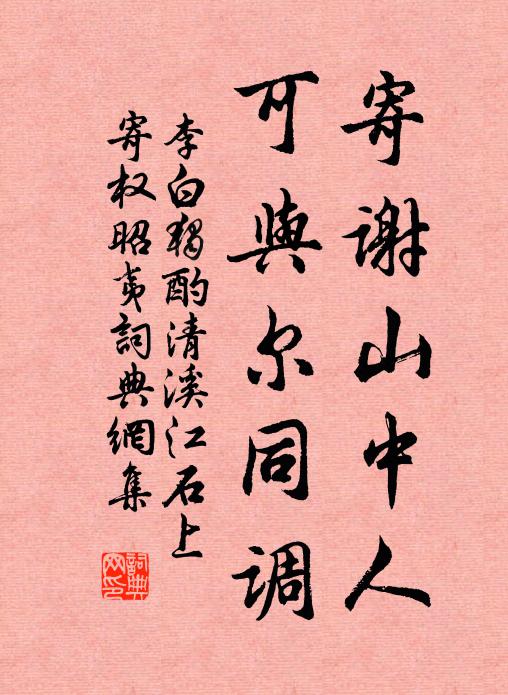 寄谢山中人
可與尔同调
李白独酌清溪江石上
寄权昭夷詞典網集
詞典
网印